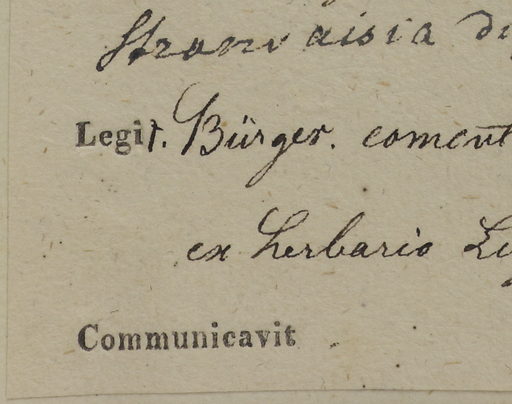 Stranvaisia di
Legit. Bürger. comont
ex herbario Lu
Communicavit